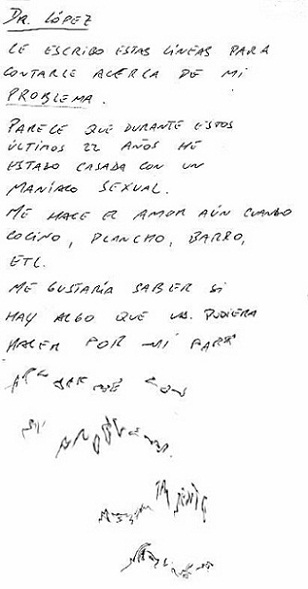 DR. LÓPEZ
LE ESCRIBO ESTAS LÍNEAS PARA
CONTARLE ACERCA DE MI
PROBLEMA.
PARECE QUE DURANTE ESTOS
ÚLTIMOS 22 AÑOS HE
ESTADO CASADA CON UN
MANÍACO SEXUAL.
ME HACE EL AMOR AÚN CUANDO
COCINO, PLANCHO, BARRO,
ETC.
ME GUSTARÍA SABER SI
HAY ALGO QUE UD. PUDIERA
HACER POR MÍ PARA
CON
MI PROBLEMA.